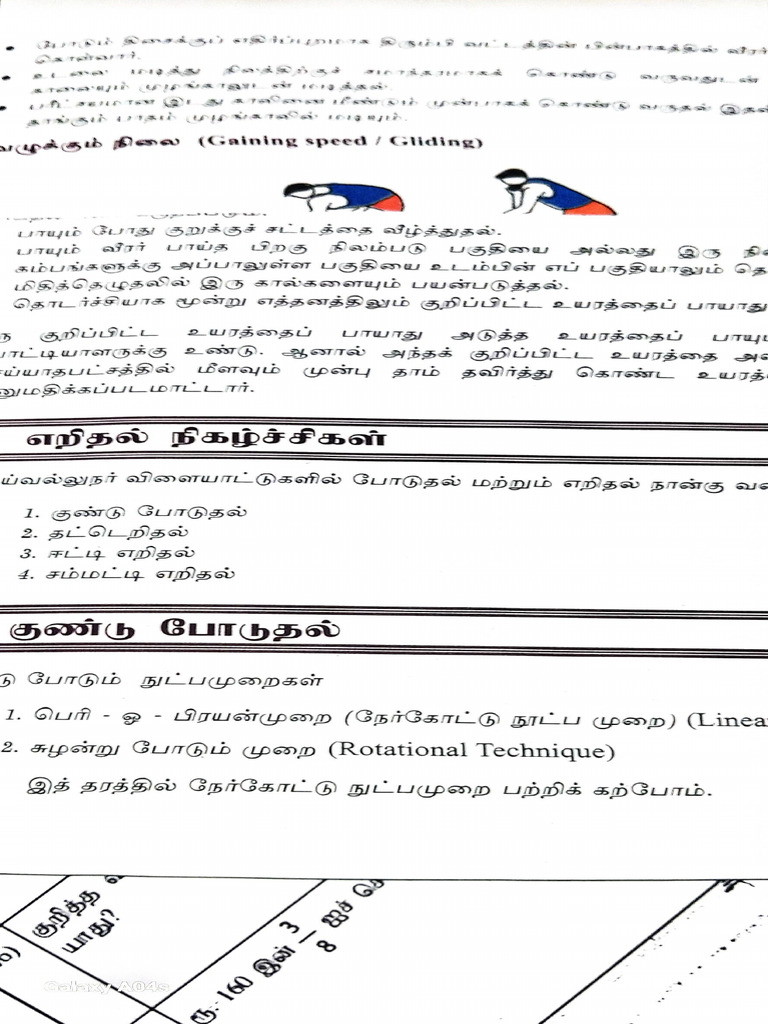 போடும் திசைக்குப் எதிர்ப்புறமாக திரும்பி வட்டத்தின் பின்பாகத்தில் வீரர்
கொள்வார்.
உடலை மடித்து நிலத்திற்குச் சமாந்தரமாகக் கொண்டு வருவதுடன்
காலையும் முழங்காலுடன் மடித்தல்.
பரிட்சயமான இடது காலினை மீண்டும் முன்பாகக் கொண்டு வருதல் இதன்
தாங்கும் பாதம் முழங்காலில் மடியும்.
வழுக்கும் நிலை (Gaining speed / Gliding)
பாயும் போது குறுக்குச் சட்டத்தை வீழ்த்துதல்.
பாயும் வீரர் பாய்த பிறகு நிலம்படு பகுதியை அல்லது இரு
கம்பங்களுக்கு அப்பாலுள்ள பகுதியை உடம்பின் எப் பகுதியாலும்
மிதித்தெழுதலில் இரு கால்களையும் பயன்படுத்தல்.
தொடர்ச்சியாக மூன்று எத்தனத்திலும் குறிப்பிட்ட உயரத்தைப் பாயாது
குறிப்பிட்ட உயரத்தைப் பாயாது அடுத்த உயரத்தைப்
போட்டியாளருக்கு உண்டு. ஆனால் அந்தக் குறிப்பிட்ட உயரத்தை
செய்யாதபட்சத்தில் மீளவும் முன்பு தாம் தவிர்த்து கொண்ட
அனுமதிக்கப்படமாட்டார்.
எறிதல் நிகழ்ச்சிகள்
ய்வல்லுநர் விளையாட்டுகளில் போடுதல் மற்றும் எறிதல் நான்கு
1. குண்டு போடுதல்
2. தட்டெறிதல்
3. ஈட்டி எறிதல்
4. சம்மட்டி எறிதல்
குண்டு போடுதல்
டு போடும் நுட்பமுறைகள்
1. பெரி - ஓ - பிரயன்முறை (நேர்கோட்டு நூட்ப முறை) (Linea
2. சுழன்று போடும் முறை (Rotational Technique)
இத் தரத்தில் நேர்கோட்டு நுட்பமுறை பற்றிக் கற்போம்.
குறித்த
யாது?
ரூ. 160 இன் 3/8 ஐச்
Galaxy A04s